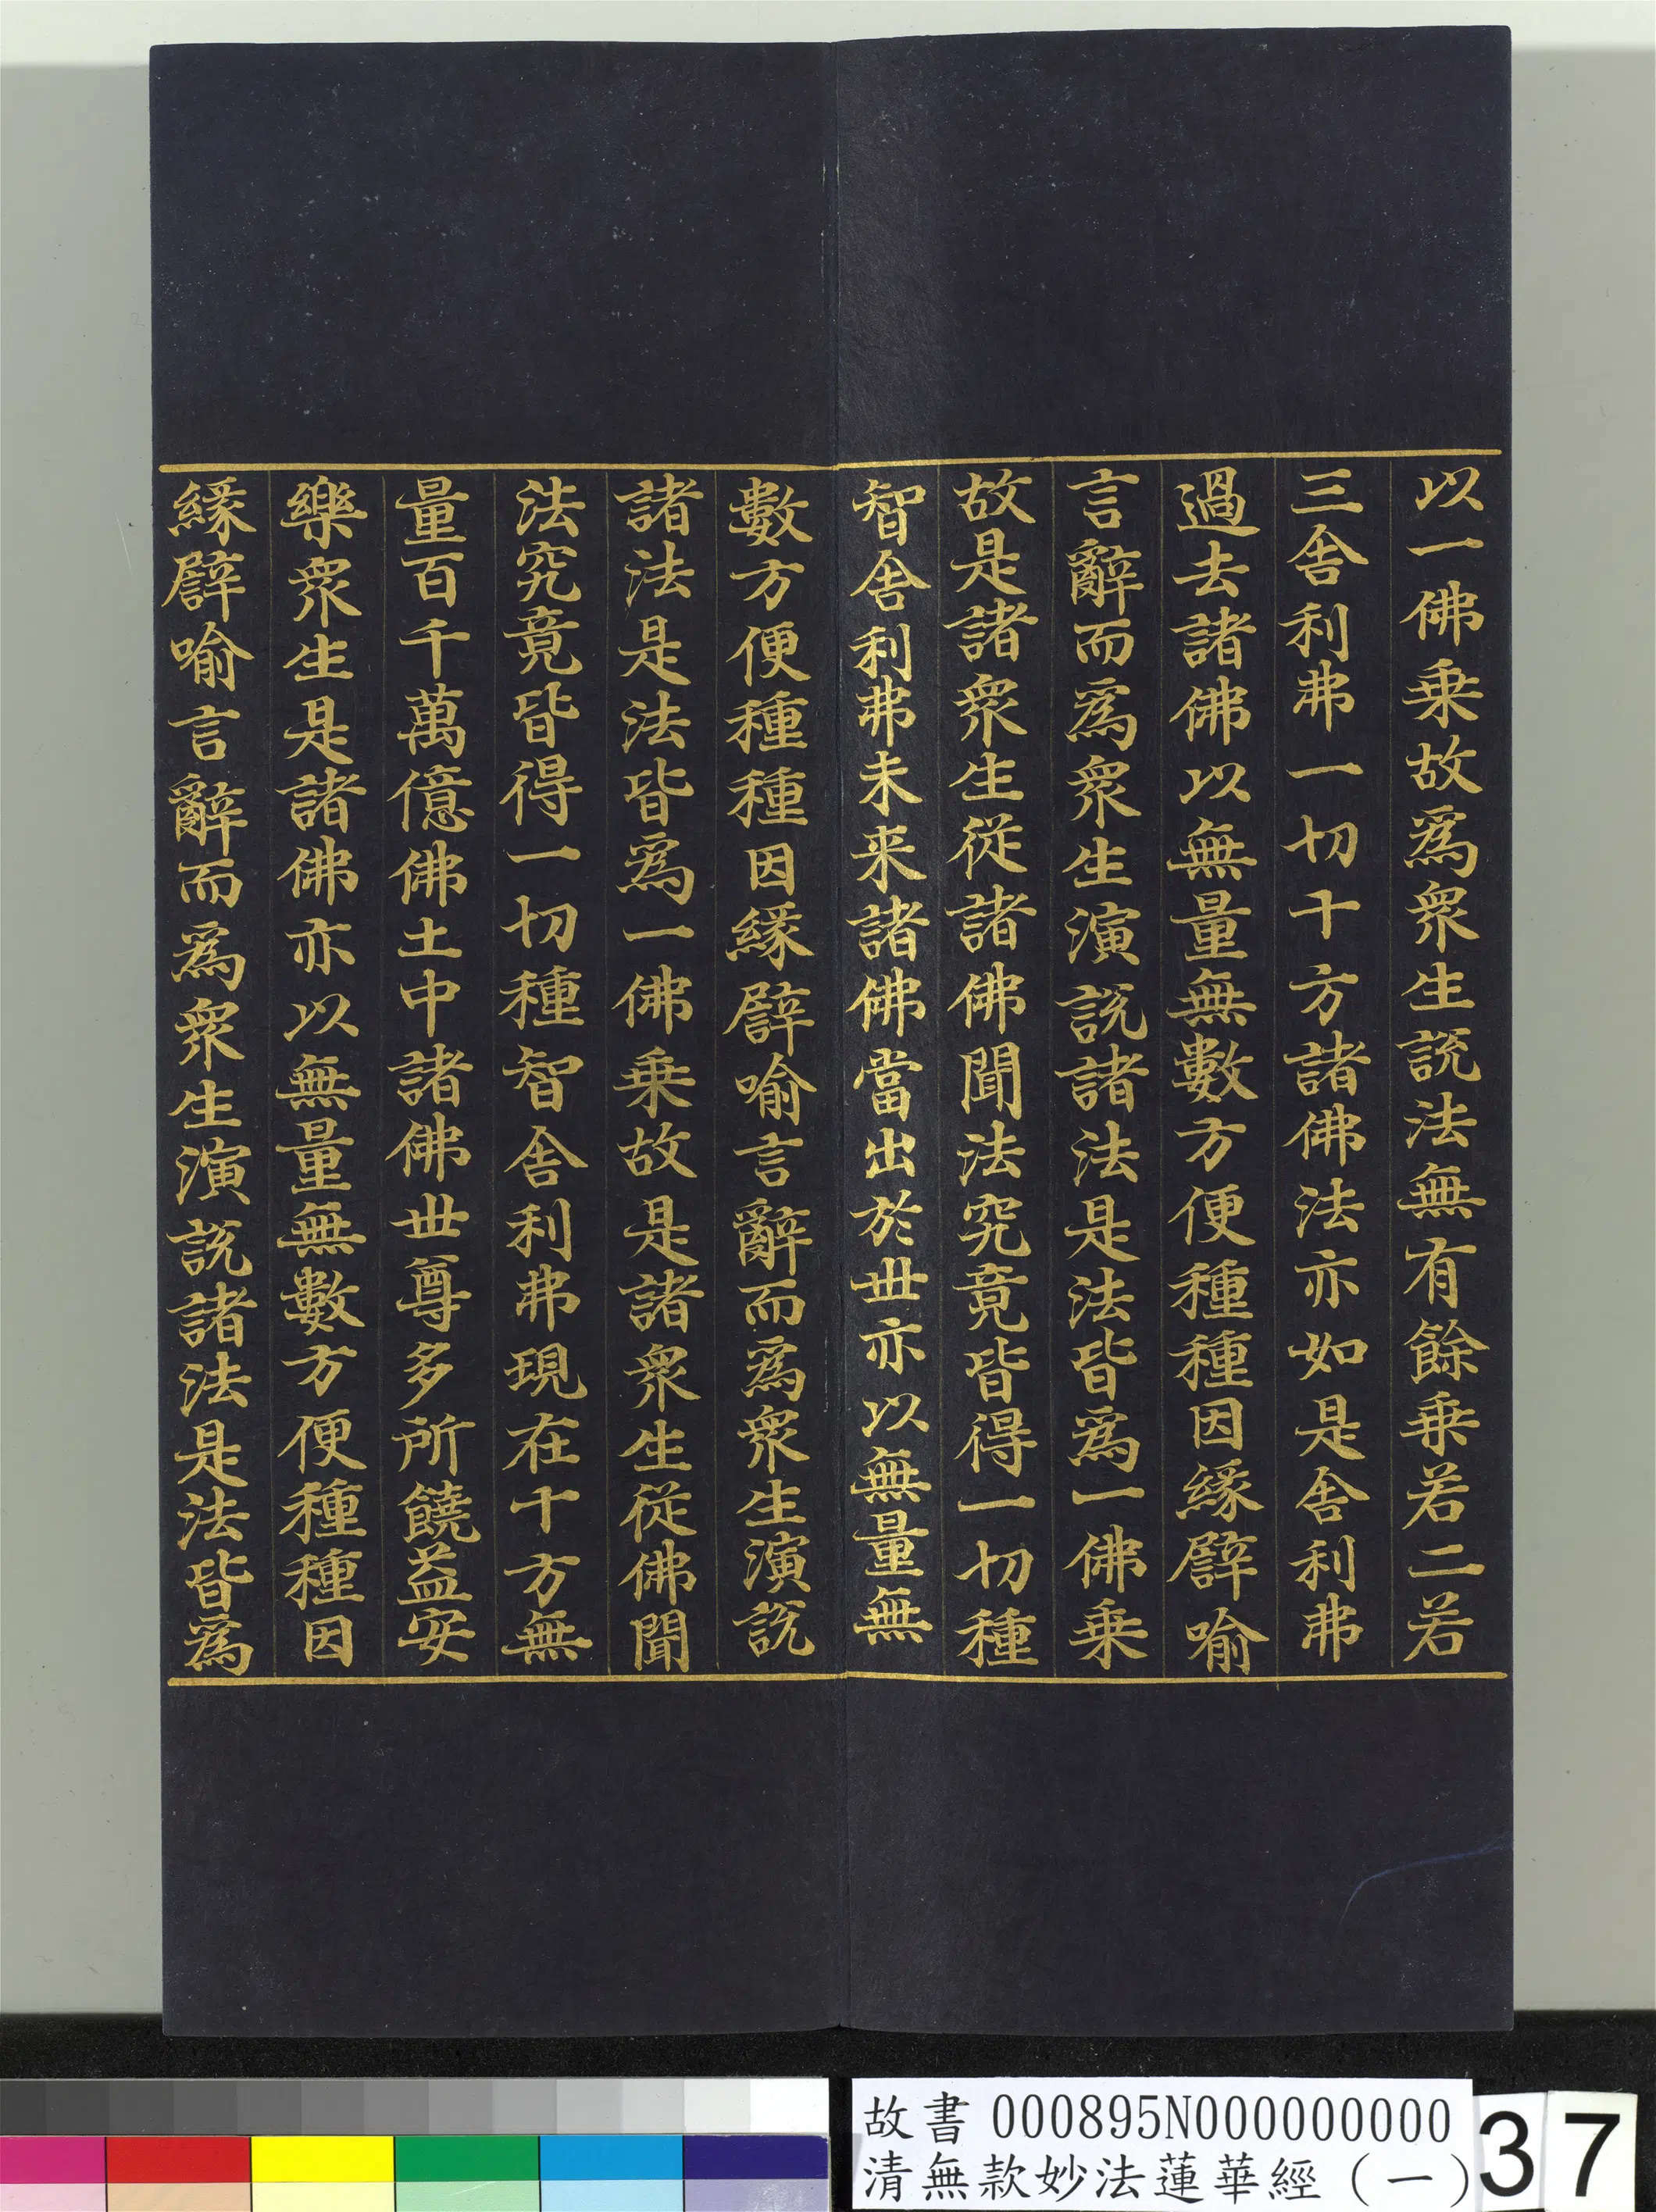 以一佛乗故爲衆生説法無有餘乗若二若
三舎利弗一切十方諸佛法亦如是舎利弗
過去諸佛以無量無數方便種種因縁譬喻
言辭而爲衆生演説諸法是法皆爲一佛乗
故是諸衆生從諸佛聞法究竟皆得一切種
智舎利弗未来諸佛當出於世亦以無量無
數方便種種因縁譬喻言辭而爲衆生演説
諸法是法皆爲一佛乗故是諸衆生從佛聞
法究竟皆得一切種智舎利弗現在十方無
量百千萬億佛土中諸佛世尊多所饒益安
樂衆生是諸佛亦以無量無數方便種種因
縁譬喻言辭而爲衆生演説諸法是法皆爲
故書 000895N000000000
清無款妙法蓮華經（一）
37